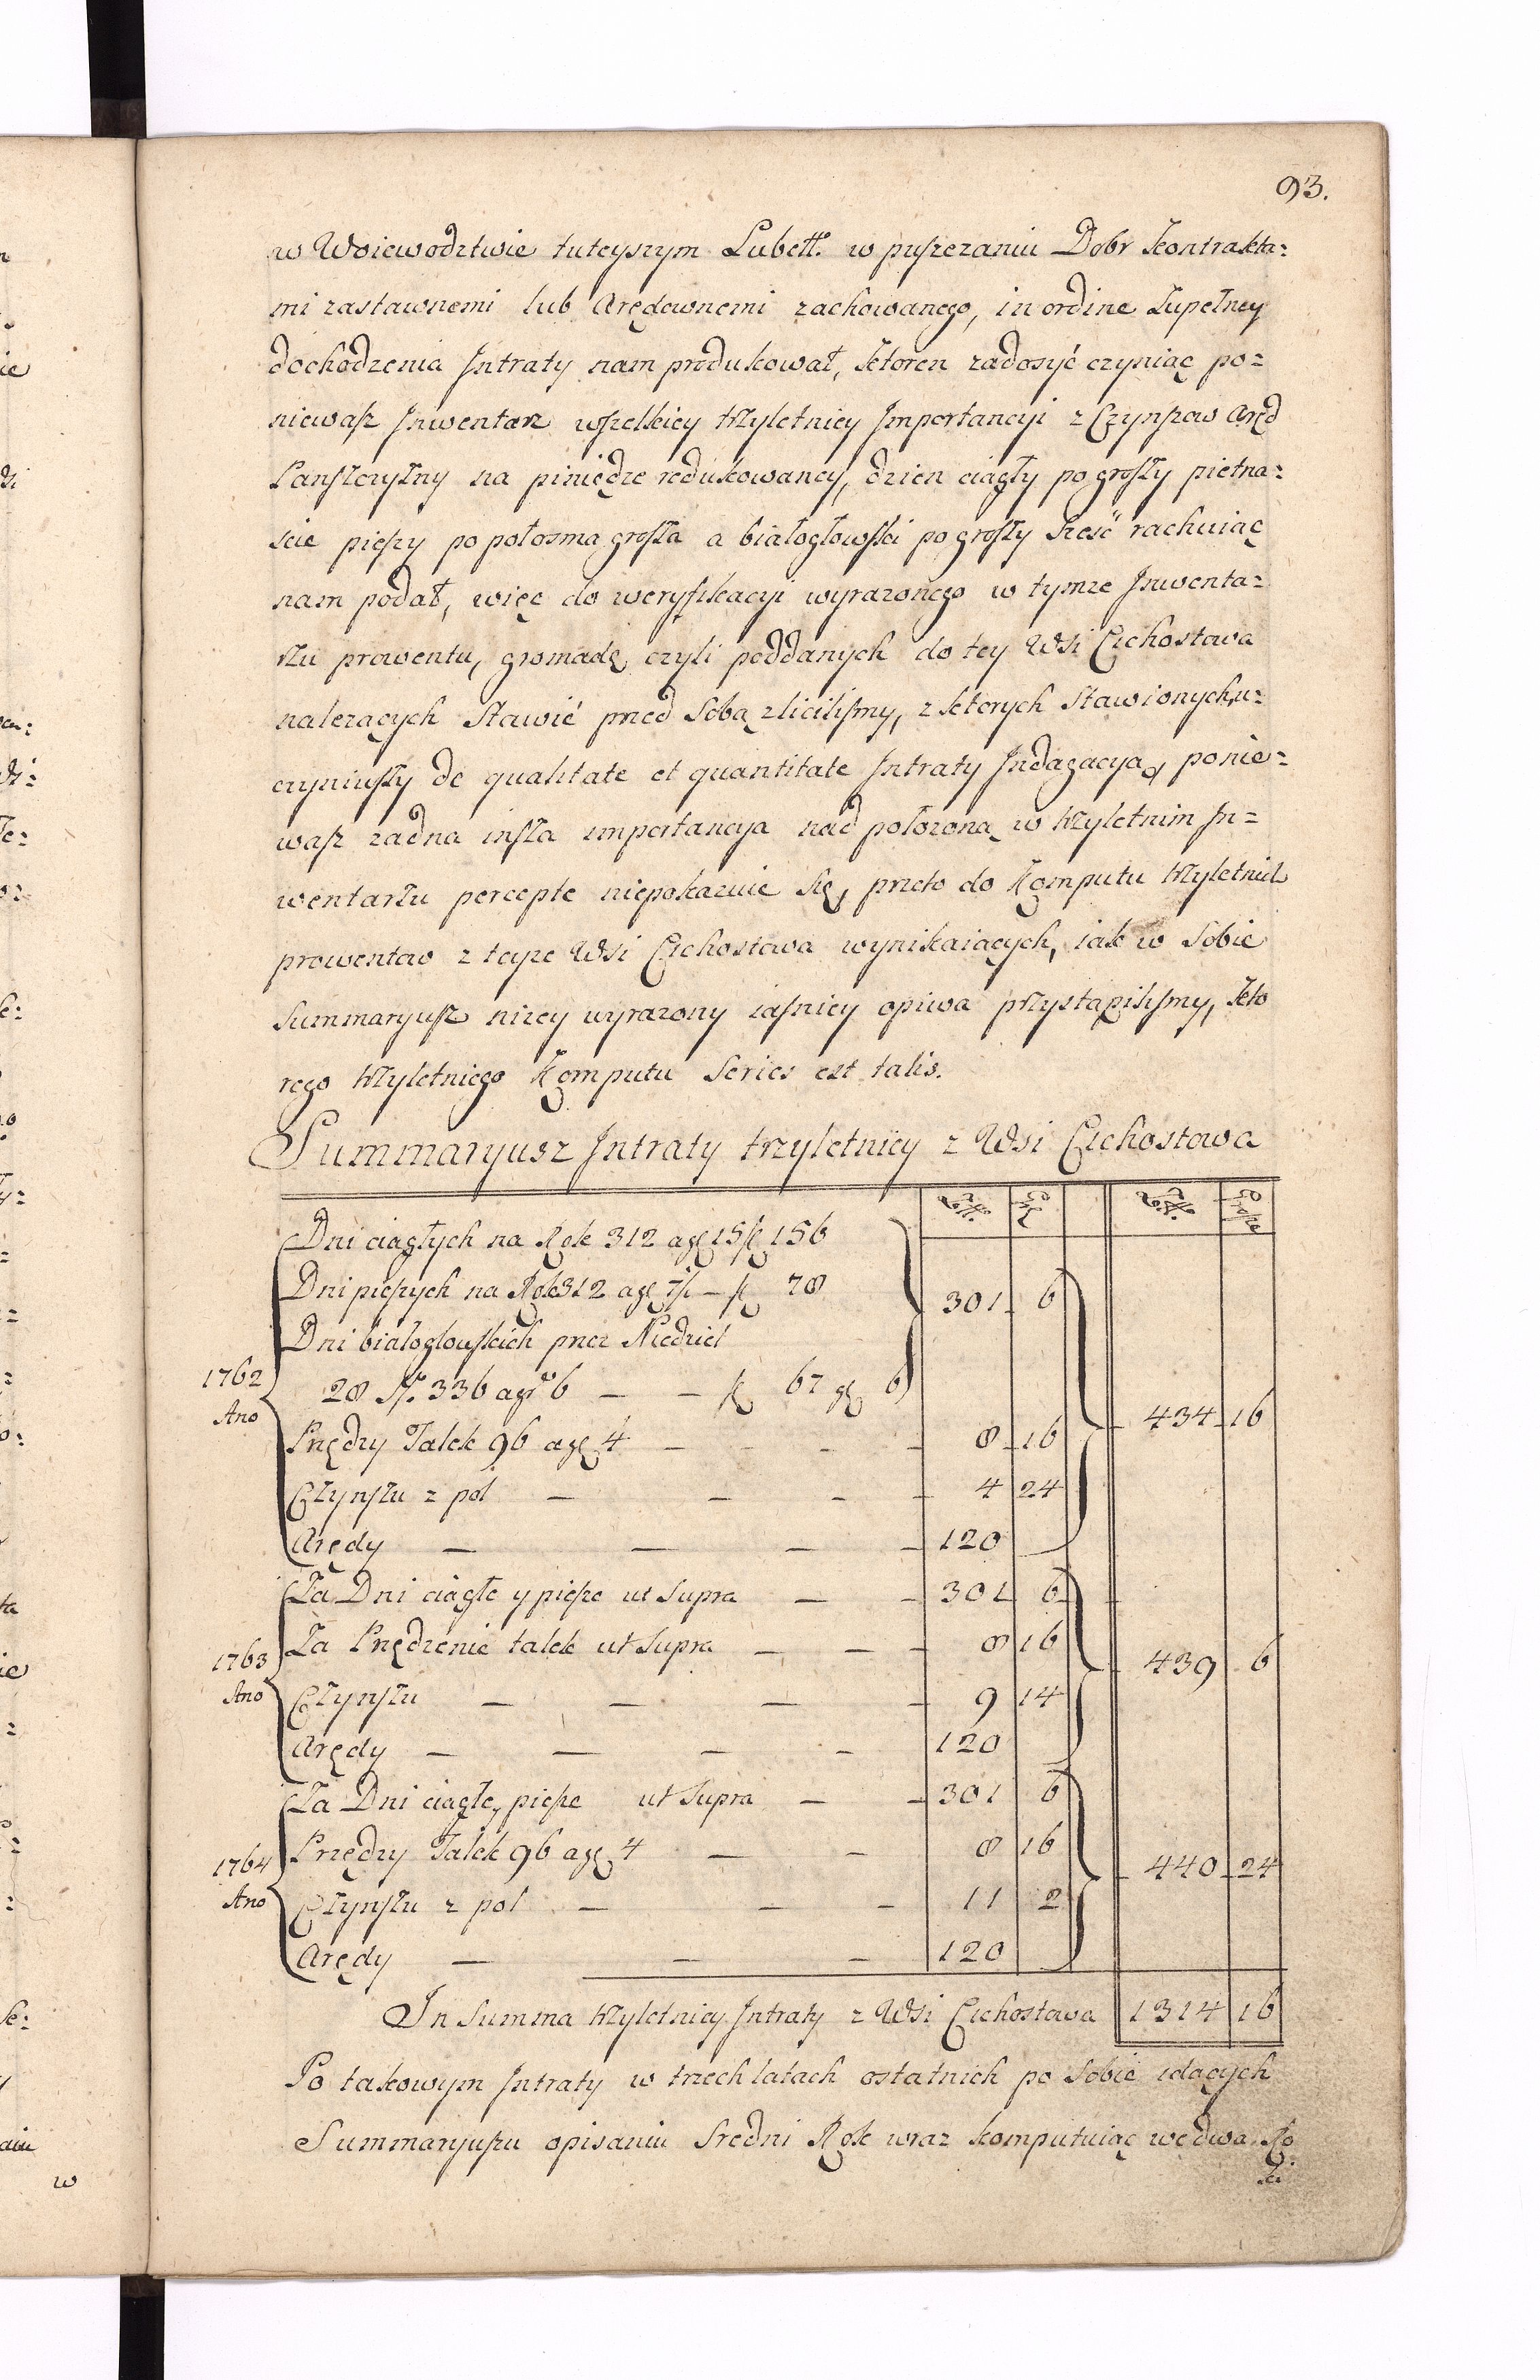 93.
w Woiewodztwie tuteyszym Lubell. w puszczaniu Dobr Kontrakta=
mi zastawnemi lub Arędownemi zachowanego, in ordine Zupełney
dochodzenia Jntraty nam produkował, ktoren zadosyć czyniąc po=
niewasz Jnwentarz wszelkiey trzyletniey Jmportancyi z Czynszow Aręd
Panszczyzny na piniędze redukowaney, dzien ciągły po groszy pietna=
scie pieszy po połosma grosza a białogłowski po groszy szesć rachuiąc
nam podał, więc do weryfikacyi wyrazonego w tymze Jnwenta=
rzu prowentu, gromadę czyli poddanych do tey Wsi Cichostowa
nalezących stawić przed sobą zliciliszmy, z ktorych stawionych, u=
czyniwszy de qualitate et quantitate Jntraty Jndagacyą, ponie=
wasz zadna insza importancya nad połozoną w trzyletnim Jn=
wentarzu percepte niepokazuie się, przeto do Komputu trzyletnich
prowentow z teyze Wsi Cichostowa wynikaiących, iak w sobie
Summaryusz nizey wyrazony iasniey opiwa przystąpiliszmy, kto
rego trzyletniego Komputu Series est talis.
Summaryusz Jntraty trzyletniey z Wsi Cichostowa
Dni ciągłych na Rok 312 a gr 15 fl 156
Dni pieszych na Rok 312 a gr 7½ — fl 78 301 6
Dni białogłowskich przez Niedziel
1762 28 N. 336 a gr 6 — — fl 67 gr 6
Ano 434 16
Przędzy Talek 96 a gr 4 — — — — 8 16
Czynszu z pol — — — — 4 24
Arędy — — — — 120
Za Dni ciągłe y piesze ut Supra — — 301 6
Za Przędzenie talek ut Supra — — — 8 16
1763 439 6
Ano Czynszu — — — — 9 14
Arędy — — — — 120
Za Dni ciągłe, piesze ut Supra — — 301 6
Przędzy Talek 96 a gr 4 — — 8 16
1764 440 24
Ano Czynszu z pol — — — 11 2
Arędy — — — 120
Jn Summa trzyletniey Jntraty z Wsi Cichostowa 1314 16
Po takowym Jntraty w trzech latach ostatnich po sobie idących
Summaryuszu opisaniu Sredni Rok wraz komputuiąc we dwa Ro
w